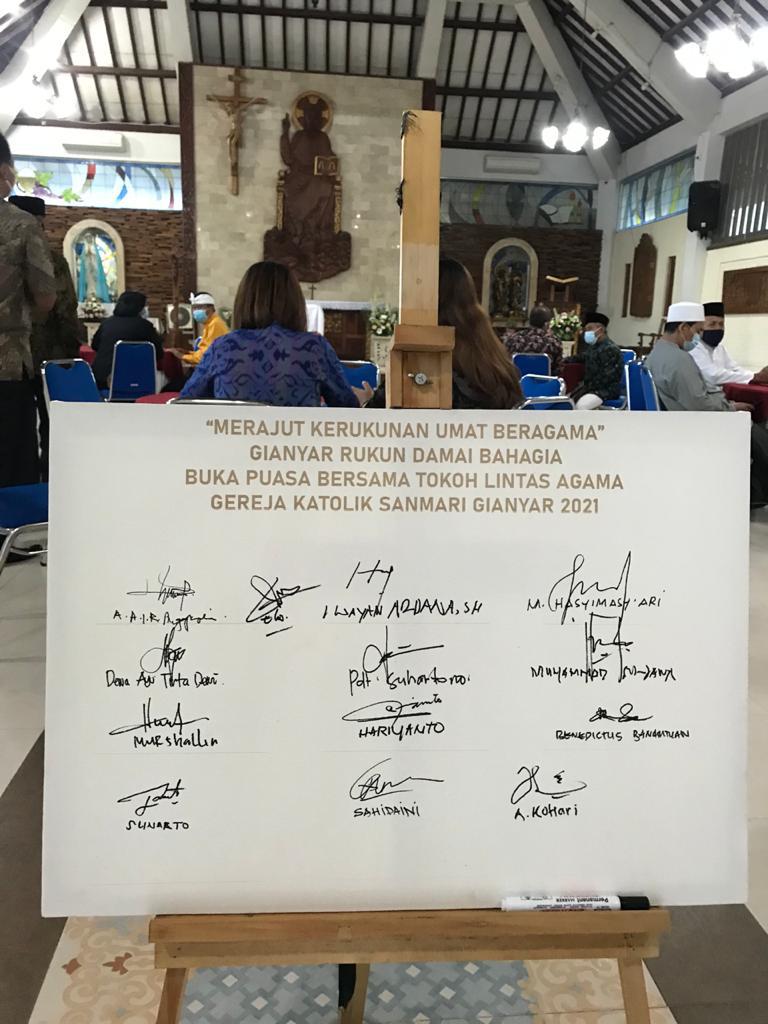 "MERAJUT KERUKUNAN UMAT BERAGAMA"
GIANYAR RUKUN DAMAI BAHAGIA
BUKA PUASA BERSAMA TOKOH LINTAS AGAMA
GEREJA KATOLIK SANMARI GIANYAR 2021
I WAYAN ARDANA, SH
M. HASYIMASY'ARI
Dewa Ayu Tirta Dewi.
Pdt. Suhartono.
MUHAMMAD
MURShallin
HARIYANTO
BENEDICTUS
SUNARTO
SAHIDAINI
A. KOHARI
Permanent
MARKER